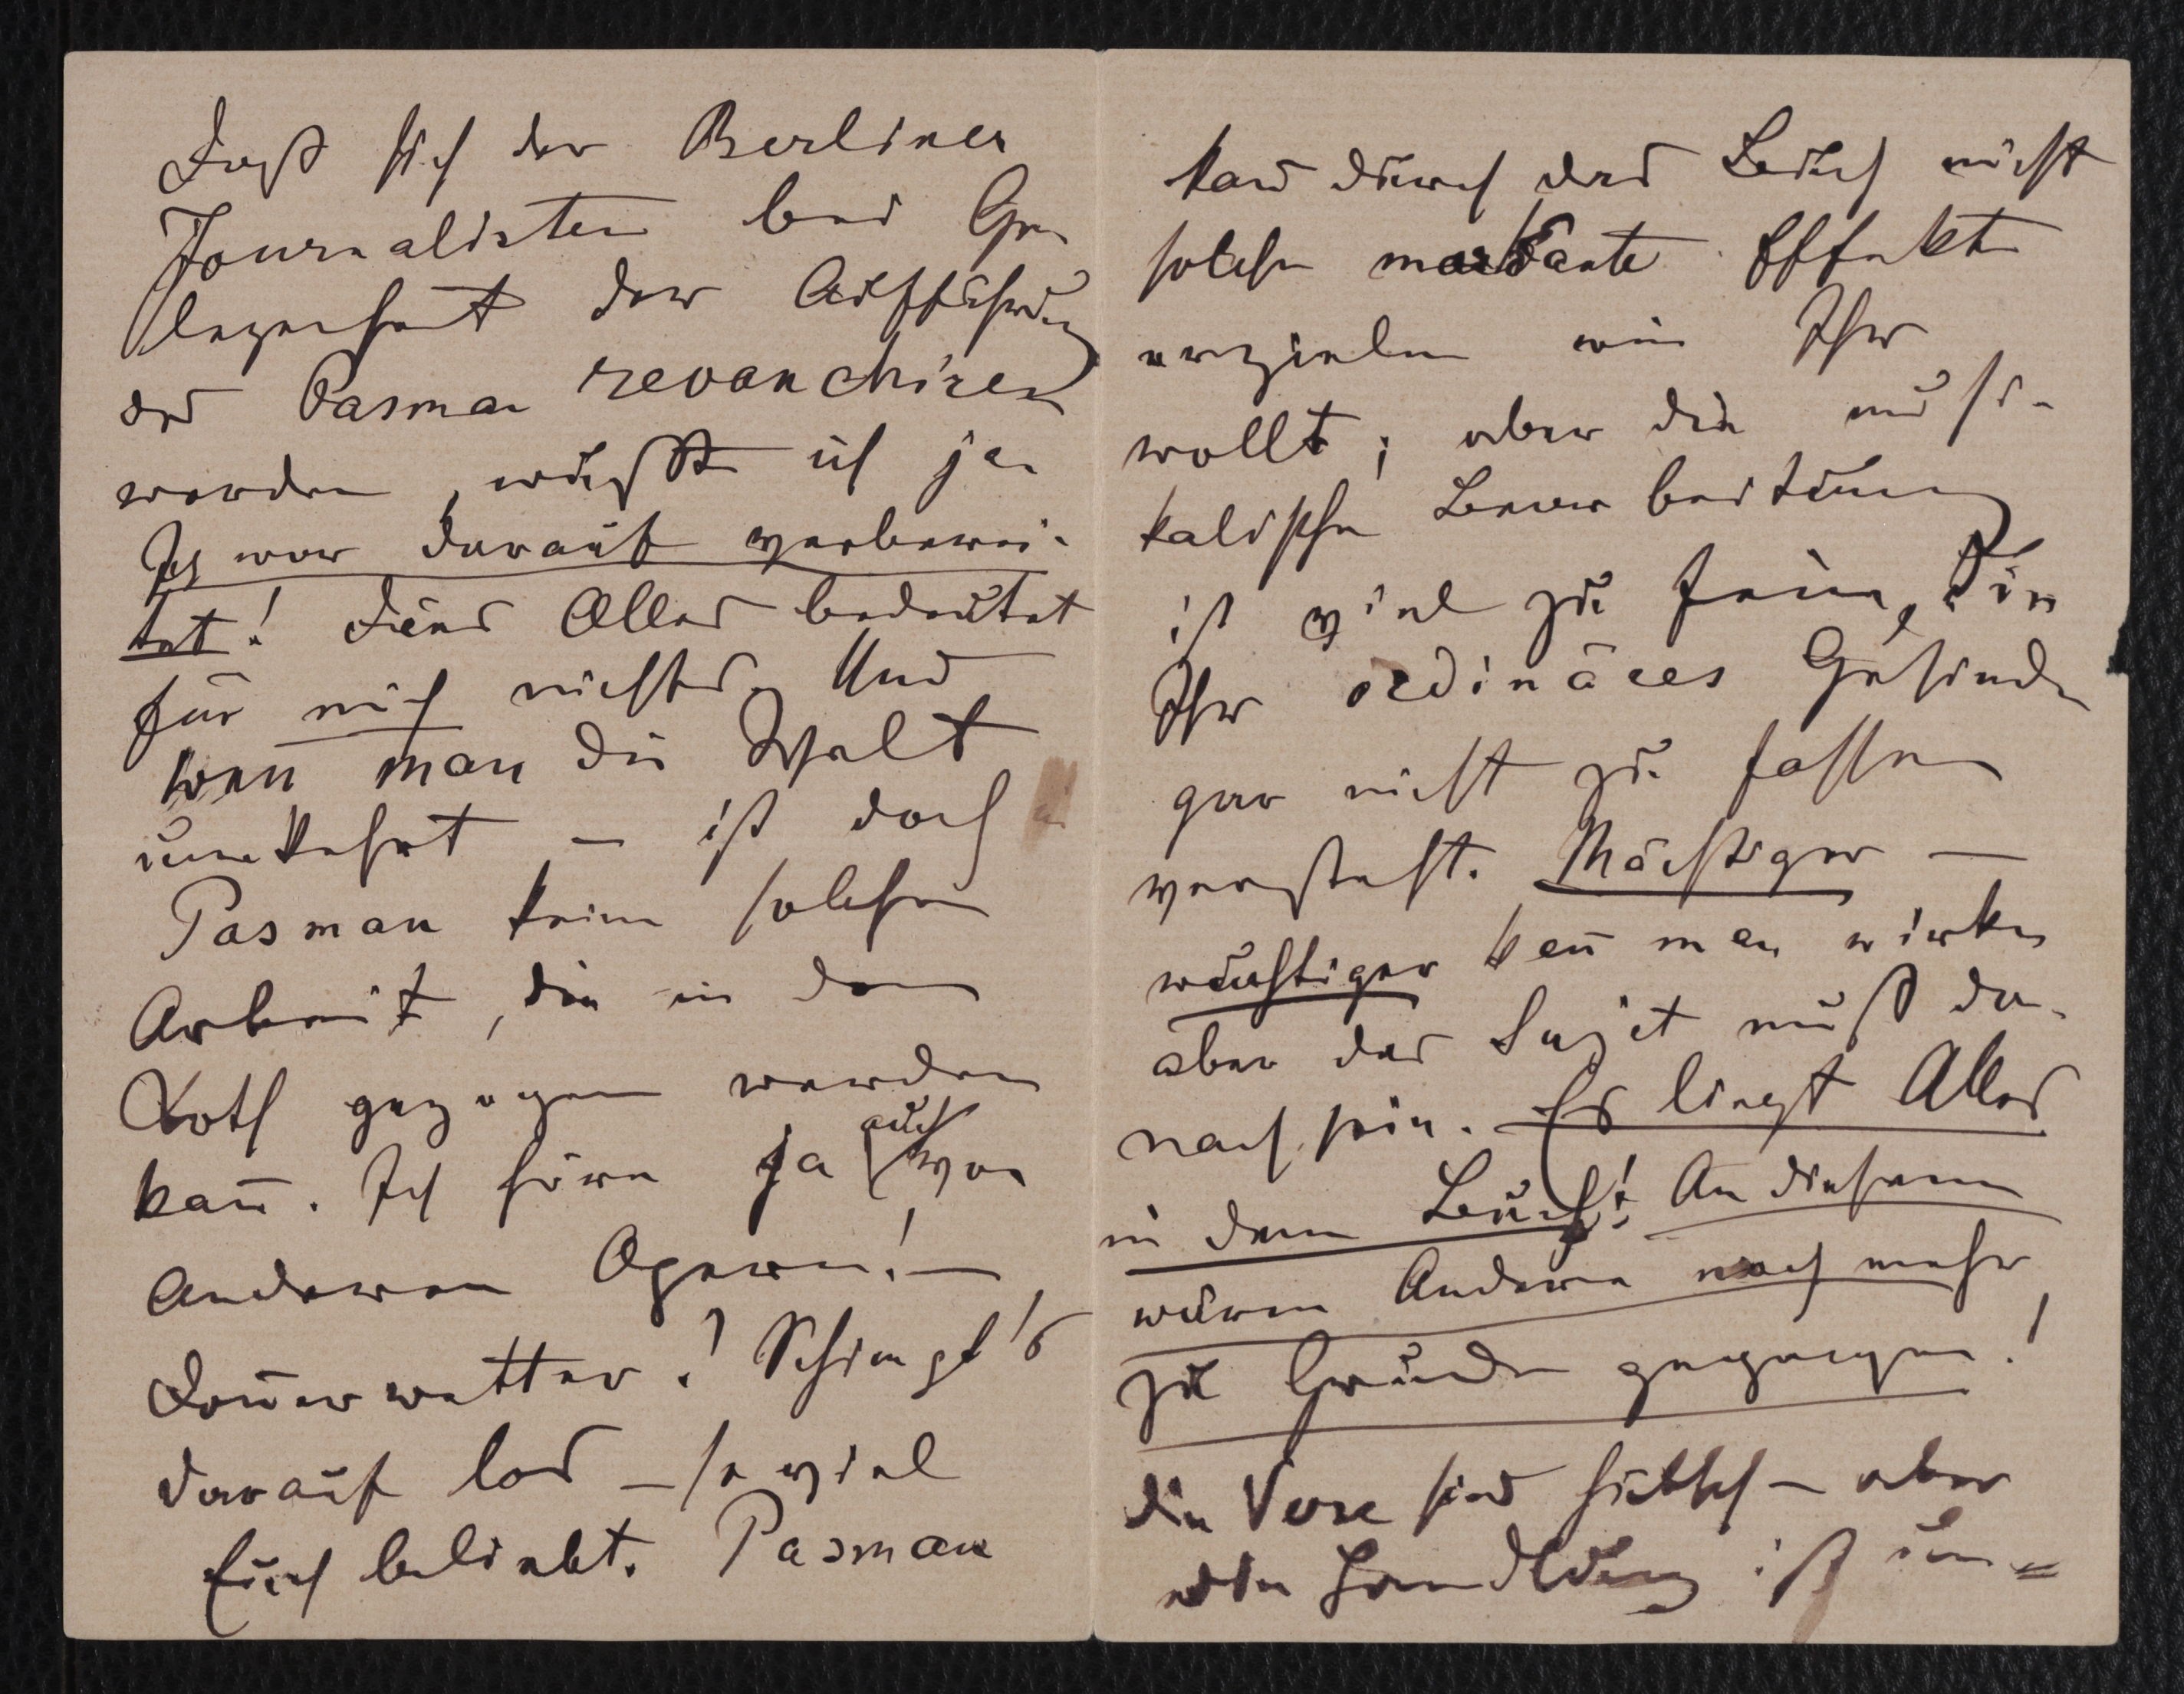 Daß sich der Berliner
Journalisten bei Ge-
legenheit der Aufführung
des Pasman revanchiren
werden, wußte ich ja
Ich war darauf vorberei-
tet! Dies Alles bedeutet
für mich nichts. Und
wen̄ man die Welt
umkehrt – ist doch
Pasman keine solche
Arbeit, die in den
Koth gezogen werden
kan̄. Ich höre ja auch von
anderen Opern! –
Don̄erwetter! Schimpft's
darauf los – so viel
Euch beliebt. Pasman
kan̄ durch das Buch nicht
solche markante Effekte
erzielen wie Ihr
wollt; aber die musi-
kalische Bearbeitung
ist viel zu fein, die
Ihr ordinäres Gesindel
gar nicht zu fassen
versteht. Mächtiger –
wuchtiger kan̄ man wirken
aber das Sujet muß da-
nach sein. Es liegt Alles
in dem Buch! An diesem
wären Andere noch mehr
zu Grunde gegangen!
Die Verse sind hübsch – aber
die Handlung ist un=